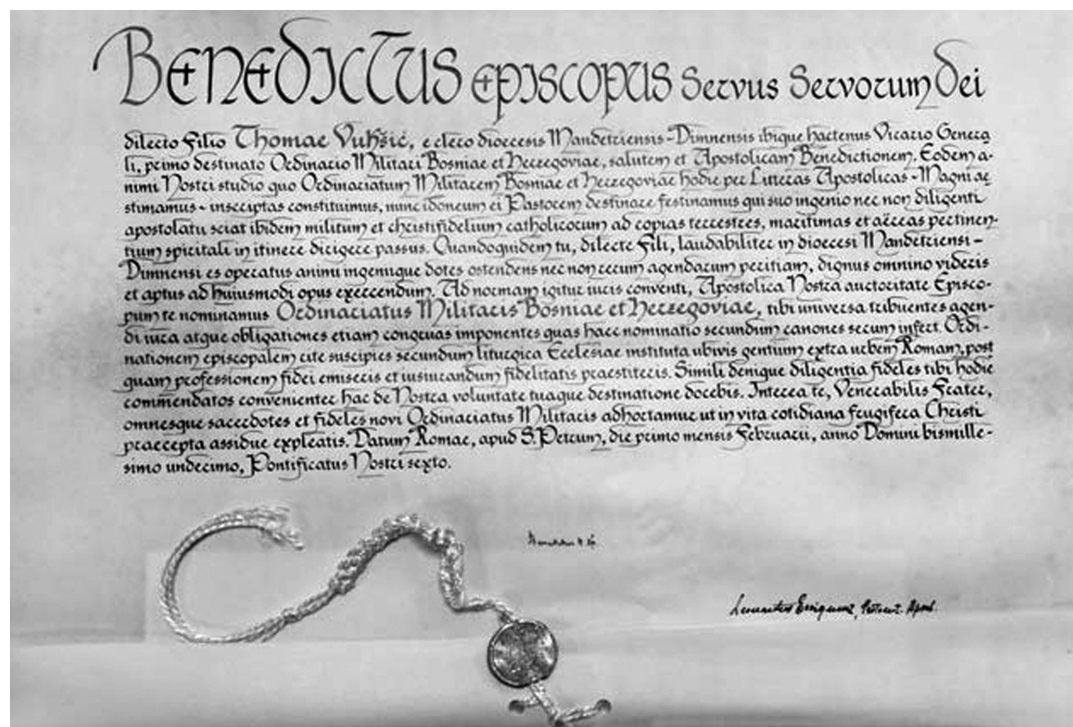 BENEDICTUS EPISCOPUS Servus Servorum Dei
dilecto Filio Thomae Vukšić, e clero dioecesis Mandetriensis-Dimnensis ibique hactenus Vicario Genera
li, primo destinato Ordinario Militari Bosniae et Herzegoviae, salutem et Apostolicam Benedictionem. Eodem a-
nimi Nostri studio quo Ordinariatum Militarem Bosniae et Herzegoviae hodie per Litteras Apostolicas - Magni ae
stimamus - inscriptas constituimus, nunc idoneum ei Pastorem destinare festinamus qui suo ingenio nec non diligenti
apostolatu sciat ibidem militum et christifidelium catholicorum ad copias terrestres, maritimas et aëreas pertinen-
tium spiritali in itinere dirigere passus. Quandoquidem tu, dilecte Fili, laudabiliter in dioecesi Mandetriensi -
Dimnensi es operatus animi ingeniique dotes ostendens nec non rerum agendarum peritiam, dignus omnino videris
et aptus ad huiusmodi opus exercendum. Ad normam igitur iuris conventi, Apostolica Nostra auctoritate Episco-
pum te nominamus Ordinariatus Militaris Bosniae et Herzegoviae, tibi universa tribuentes agen-
di iura atque obligationes etiam congruas imponentes quas haec nominatio secundum canones secum infert. Ordi-
nationem episcopalem rite suscipies secundum liturgica Ecclesiae instituta ubivis gentium extra urbem Romam, post
quam professionem fidei emiseris et iusiurandum fidelitatis praestiteris. Simili denique diligentia fideles tibi hodie
commendatos convenienter hac de Nostra voluntate tuaque destinatione docebis. Interea te, Venerabilis Frater,
omnesque sacerdotes et fideles novi Ordinariatus Militaris adhortamur ut in vita cotidiana frugifera Christi
praecepta assidue expleatis. Datum Romae, apud S. Petrum, die primo mensis Februarii, anno Domini bismille-
simo undecimo, Pontificatus Nostri sexto.